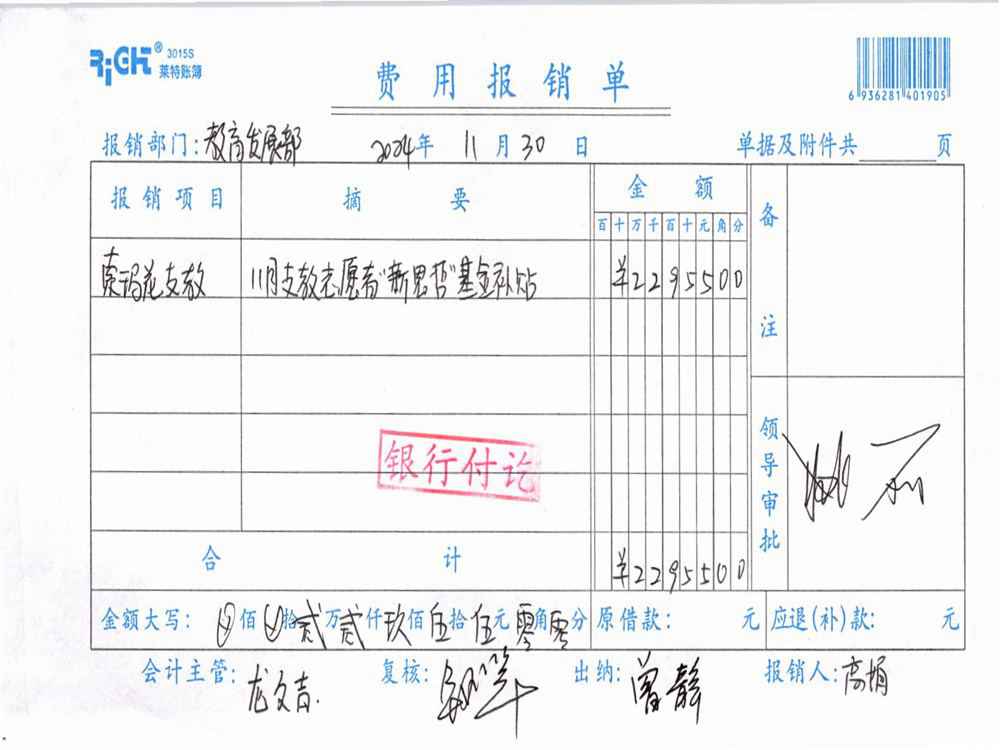 RiGHT® 3015S
莱特账簿
费用报销单
6 936281 401905
报销部门:教育发展部 2024年 11月30日 单据及附件共 页
报销项目 摘要 金额 备注
百十万千百十元角分
索玛花支教 11月支教志愿者"新思哲"基金补贴 ¥2295500
银行付讫
领导审批
合计 ¥2295500
金额大写: 佰 拾贰万贰仟玖佰伍拾伍元零角零分 原借款: 元 应退(补)款: 元
会计主管:龙文吉. 复核: 出纳:曾静 报销人:高娟